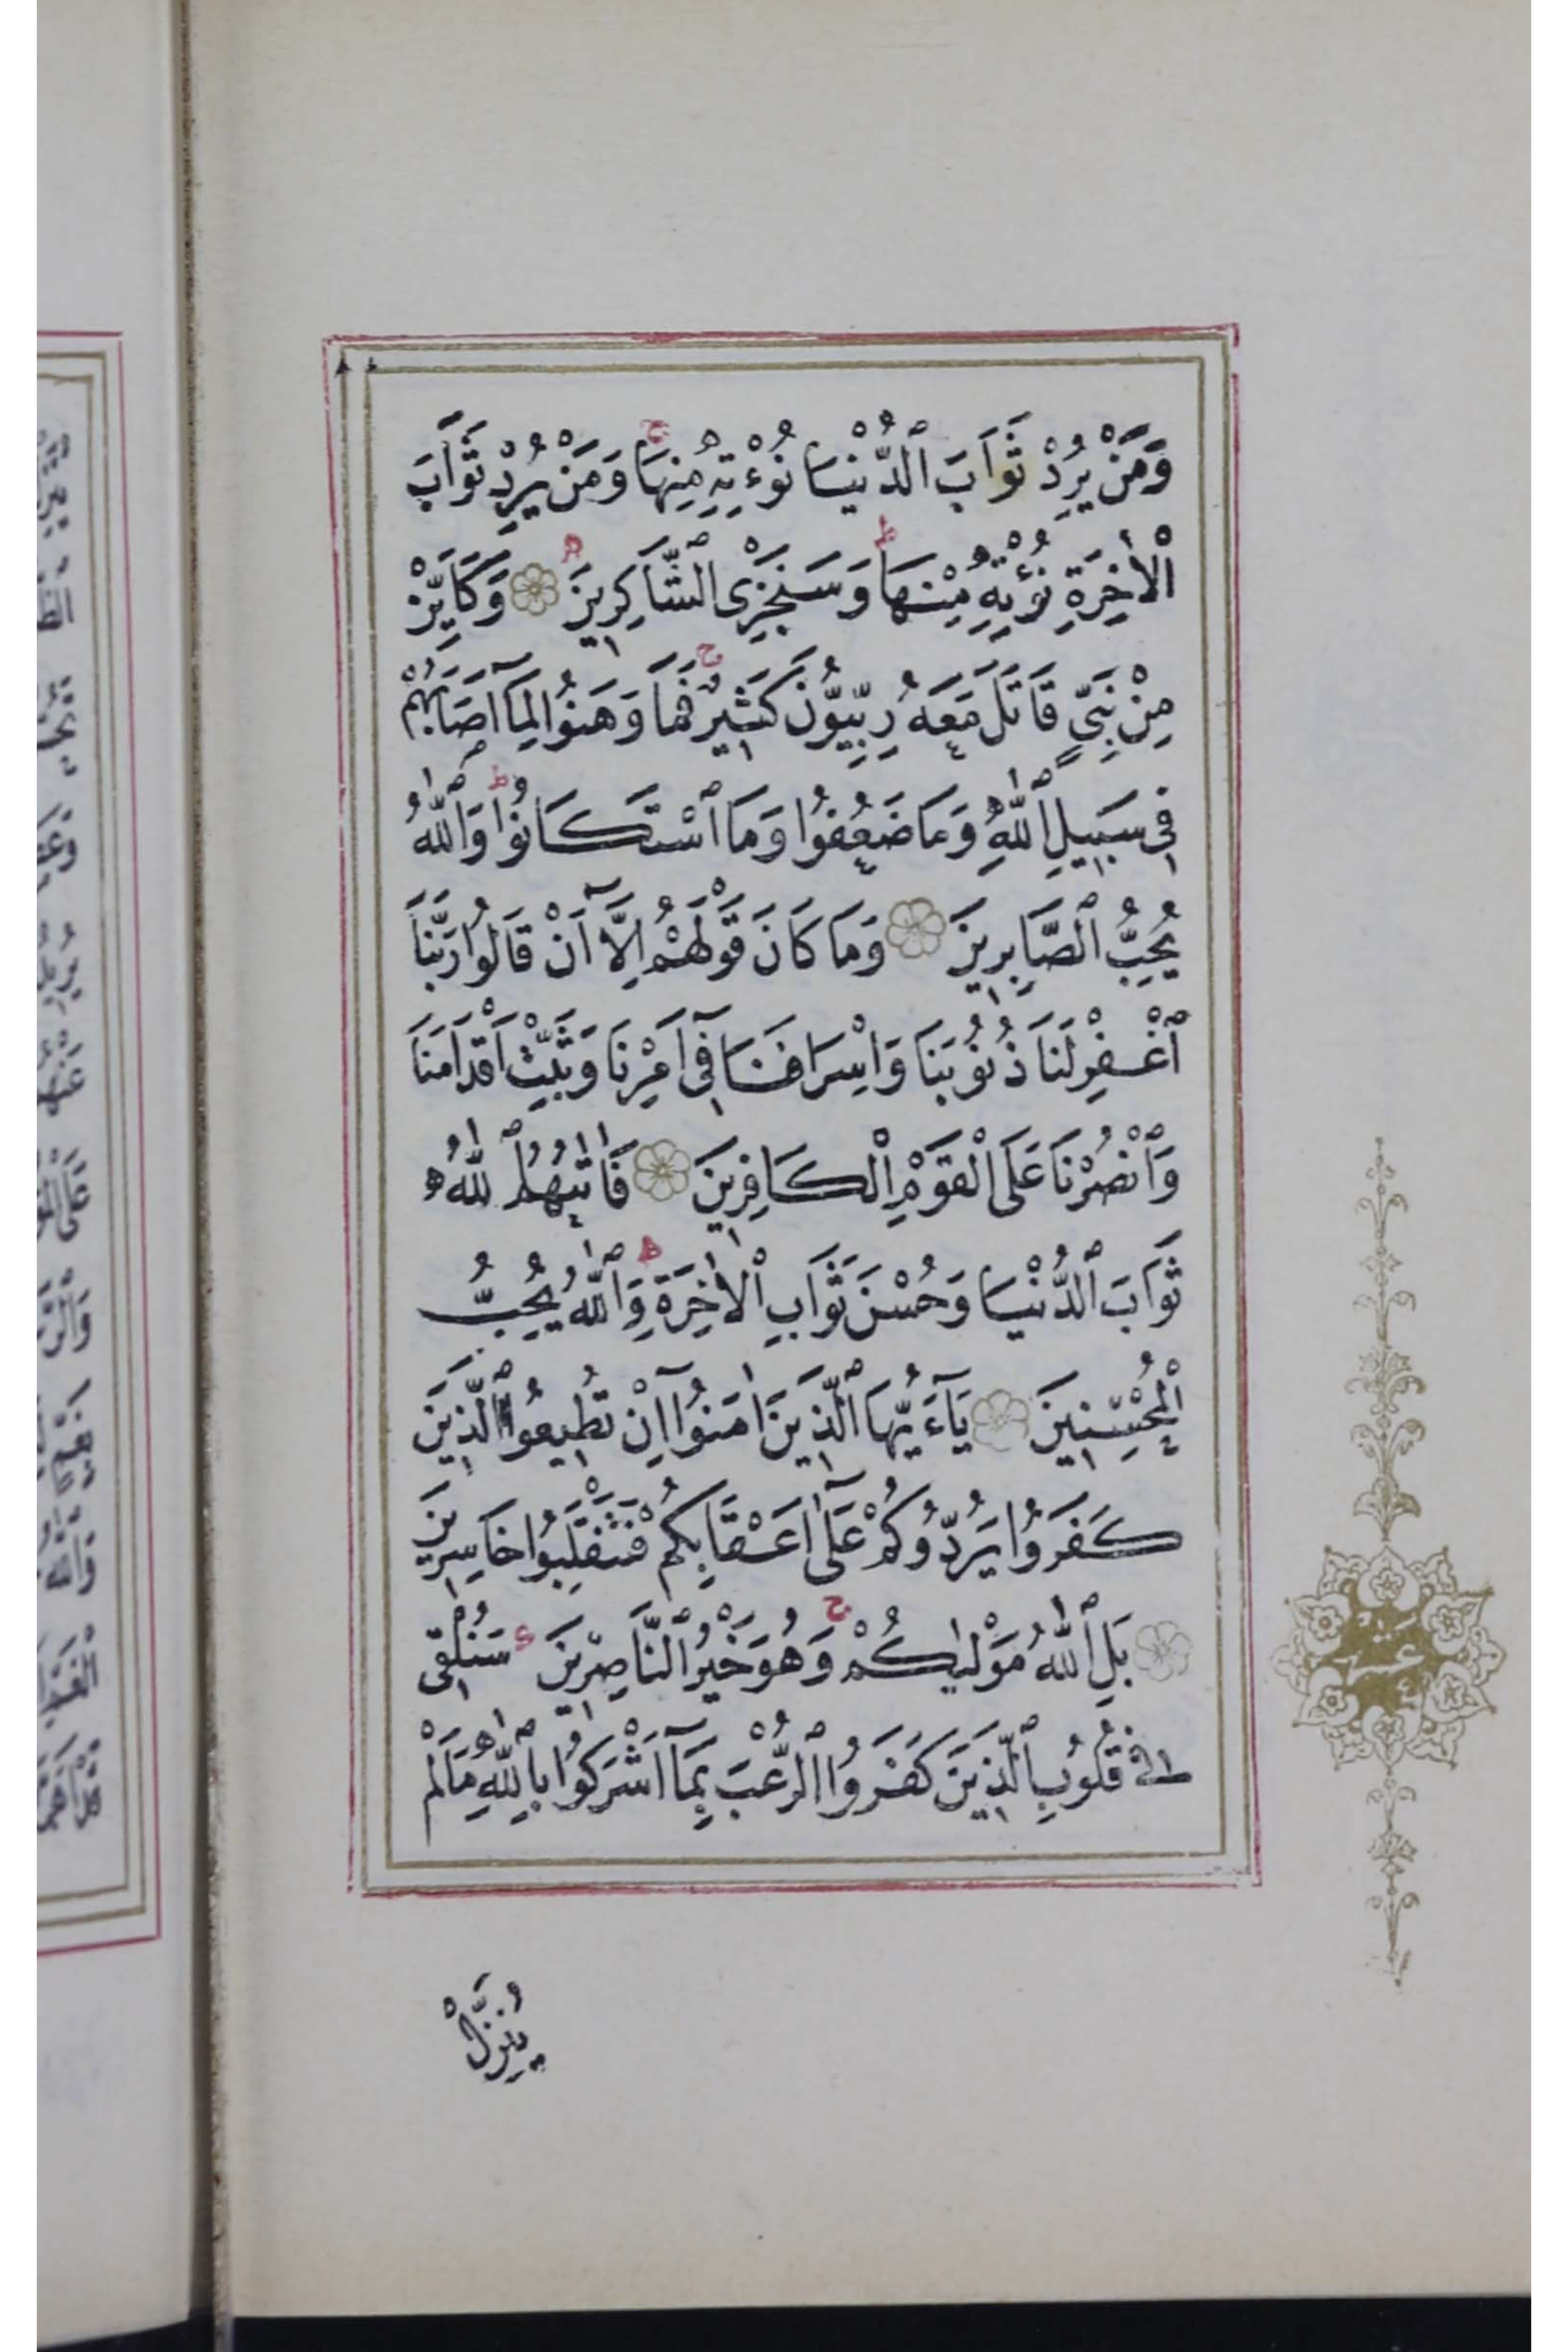 وَمَنْ يُرِدْ ثَوَابَ ٱلدُّنْيَا نُؤْتِهِ مِنْهَا ۚ وَمَنْ يُرِدْ ثَوَابَ
ٱلْاٰخِرَةِ نُؤْتِهِ مِنْهَا ۗ وَسَنَجْزِى ٱلشَّاكِرِينَ وَكَاَيِّنْ
مِنْ نَبِىٍّ قَاتَلَ مَعَهُ رِبِّيُّونَ كَثِيرٌ ۚ فَمَا وَهَنُوا لِمَآ اَصَابَهُمْ
فِى سَبِيلِ ٱللّٰهِ وَمَا ضَعُفُوا وَمَا ٱسْتَكَانُوا ۗ وَٱللّٰهُ
يُحِبُّ ٱلصَّابِرِينَ وَمَا كَانَ قَوْلَهُمْ اِلَّآ اَنْ قَالُوا رَبَّنَا
ٱغْفِرْ لَنَا ذُنُوبَنَا وَاِسْرَافَنَا فِىٓ اَمْرِنَا وَثَبِّتْ اَقْدَامَنَا
وَٱنْصُرْنَا عَلَى ٱلْقَوْمِ ٱلْكَافِرِينَ فَاٰتٰيهُمُ ٱللّٰهُ
ثَوَابَ ٱلدُّنْيَا وَحُسْنَ ثَوَابِ ٱلْاٰخِرَةِ ۗ وَٱللّٰهُ يُحِبُّ
ٱلْمُحْسِنِينَ يَآءَيُّهَا ٱلَّذِينَ اٰمَنُوٓا اِنْ تُطِيعُوا ٱلَّذِينَ
كَفَرُوا يَرُدُّوكُمْ عَلٰٓى اَعْقَابِكُمْ فَتَنْقَلِبُوا خَاسِرِينَ
بَلِ ٱللّٰهُ مَوْلٰيكُمْ ۚ وَهُوَ خَيْرُ ٱلنَّاصِرِينَ سَنُلْقِى
فِى قُلُوبِ ٱلَّذِينَ كَفَرُوا ٱلرُّعْبَ بِمَآ اَشْرَكُوا بِٱللّٰهِ مَا لَمْ
يُنَزِّلْ